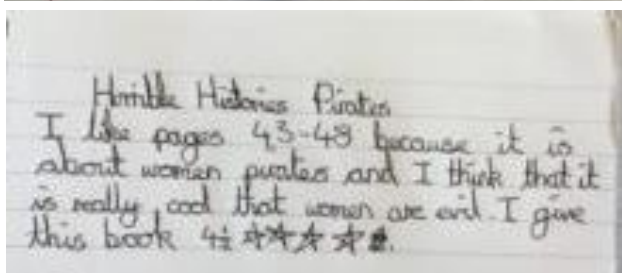 Horrible Histories Pirates
I like pages 43-48 because it is
about women pirates and I think that it
is really cool that women are evil. I give
this book 4½ ☆☆☆☆